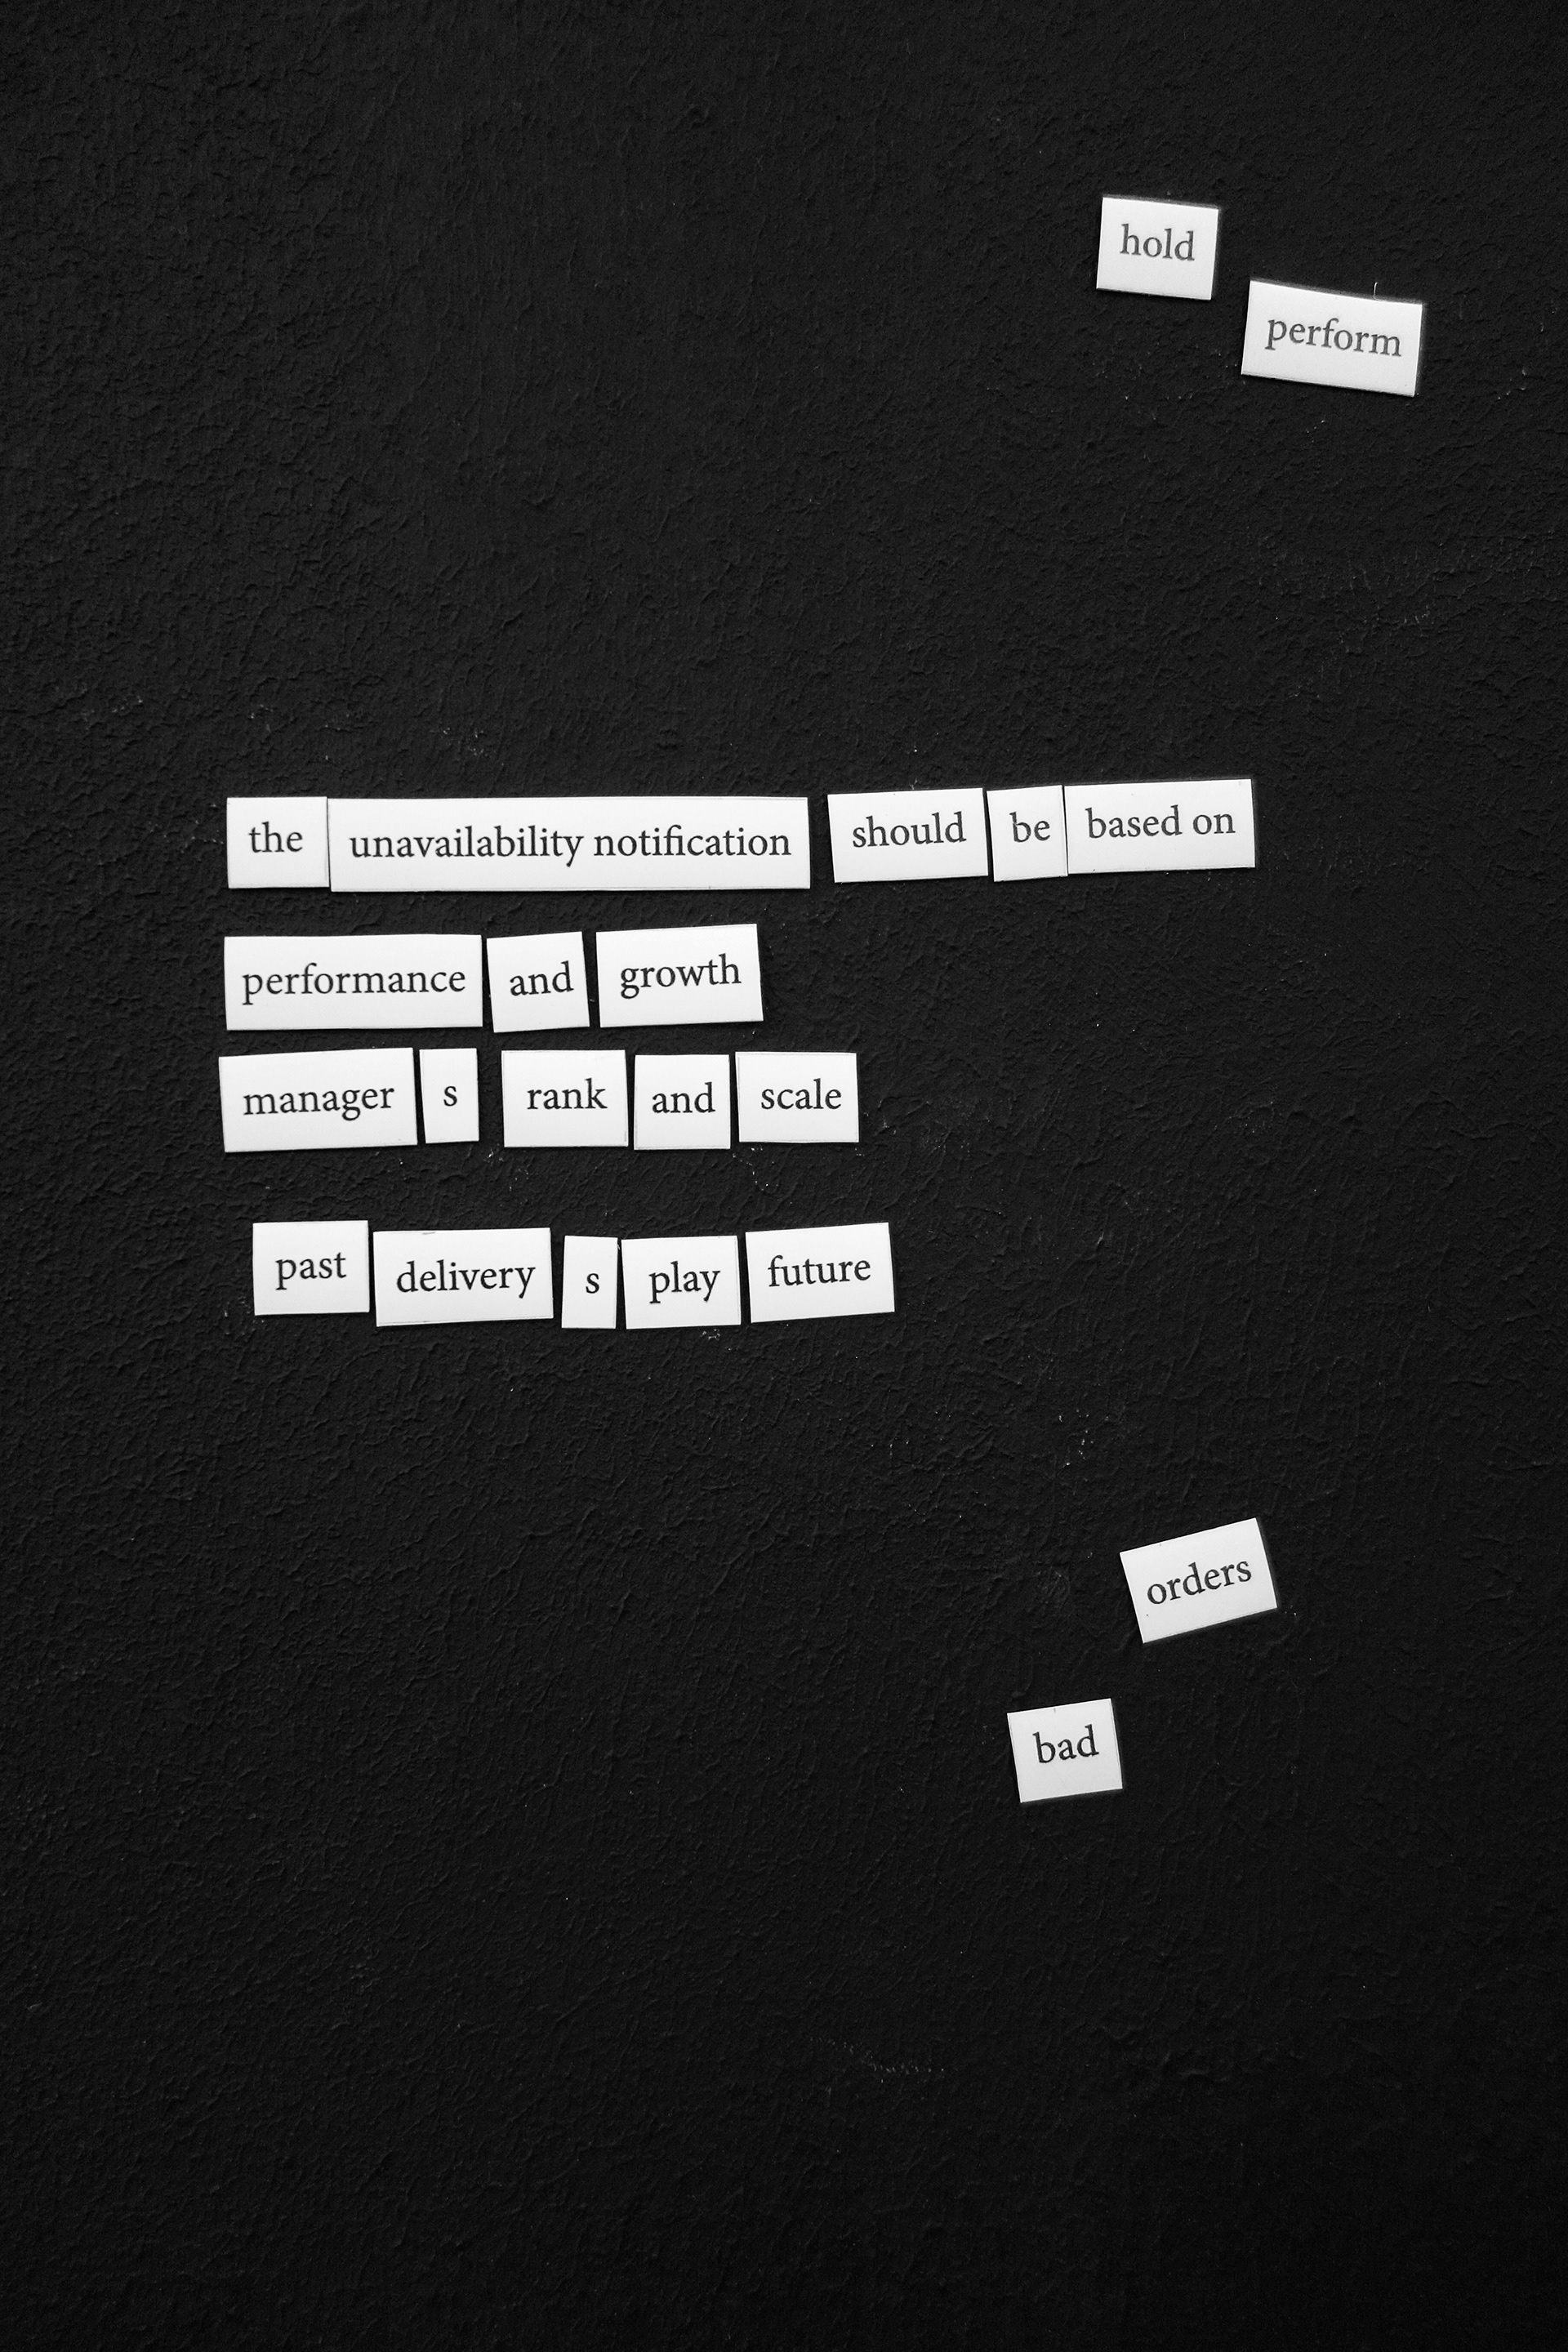 hold
perform
the unavailability notification should be based on
performance and growth
manager s rank and scale
past delivery s play future
orders
bad